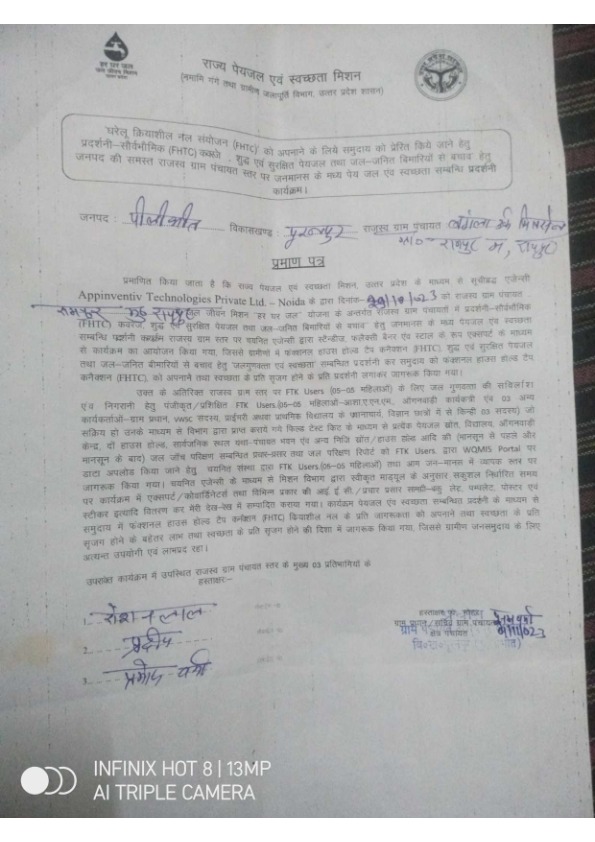 हर घर जल
जल जीवन मिशन
राज्य पेयजल एवं स्वच्छता मिशन
(नमामि गंगे तथा ग्रामीण जलापूर्ति विभाग, उत्तर प्रदेश शासन)
'घरेलू क्रियाशील नल संयोजन (FHTC)' को अपनाने के लिये समुदाय को प्रेरित किये जाने हेतु
प्रदर्शनी–सौर्वभौमिक (FHTC) कवरेज, शुद्ध एवं सुरक्षित पेयजल तथा जल–जनित बिमारियों से बचाव हेतु
जनपद की समस्त राजस्व ग्राम पंचायत स्तर पर जनमानस के मध्य पेय जल एंव स्वच्छता सम्बन्धि प्रदर्शनी
कार्यक्रम।
जनपद : पीलीभीत विकासखण्ड : पूरनपुर राजस्व ग्राम पंचायत
प्रमाण पत्र
प्रमाणित किया जाता है कि राज्य पेयजल एंव स्वच्छता मिशन, उत्तर प्रदेश के माध्यम से सूचीबद्ध एजेन्सी
Appinventiv Technologies Private Ltd. – Noida के द्वारा दिनांक– को राजस्व ग्राम पंचायत
जल जीवन मिशन "हर घर जल" योजना के अन्तर्गत राजस्व ग्राम पंचायतों में प्रदर्शनी–सौर्वभौमिक
(FHTC) कवरेज, शुद्ध एवं सुरक्षित पेयजल तथा जल–जनित बिमारियों से बचाव हेतु जनमानस के मध्य पेयजल एंव स्वच्छता
सम्बन्धि प्रदर्शनी कार्यक्रम राजस्व ग्राम स्तर पर चयनित एजेन्सी द्वारा स्टेन्डीज, फलैक्सी बैनर एंव स्टाल के रूप एक्सपर्ट के माध्यम
से कार्यक्रम का आयोजन किया गया, जिससे ग्रामीणों में फंक्शनल हाउस होल्ड टैप कनैक्शन (FHTC), शुद्ध एवं सुरक्षित पेयजल
तथा जल–जनित बीमारियों से बचाव हेतु जलगुणवत्ता एवं स्वच्छता सम्बन्धित प्रदर्शनी कर समुदाय को फंक्शनल हाउस होल्ड टैप
कनैक्शन (FHTC), को अपनाने तथा स्वच्छता के प्रति सृजग होने के प्रति प्रदर्शनी लगाकर जागरूक किया गया।
उक्त के अतिरिक्त राजस्व ग्राम स्तर पर FTK Users (05–05 महिलाओं) के लिए जल गुणवत्ता की सर्विलांश
एंव निगरानी हेतु पंजीकृत/प्रशिक्षित FTK Users.(05–05 महिलाओं–आशा,ए.एन.एम, आँगनवाड़ी कार्यकत्री एंव 03 अन्य
कार्यकर्ताओं–ग्राम प्रधान, vwsc सदस्य, प्राईमरी अथवा प्राथमिक विद्यालय के प्रधानाचार्य, विज्ञान छात्रों में से किन्ही 03 सदस्य) जो
सक्रिय हो उनके माध्यम से विभाग द्वारा प्राप्त कराये गये फिल्ड टेस्ट किट के माध्यम से प्रत्येक पेयजल स्रोत, विद्यालय, आँगनवाड़ी
केन्द्र, दो हाउस होल्ड, सार्वजनिक स्थल यथा–पंचायत भवन एंव अन्य निजि स्रोत/हाउस होल्ड आदि की (मानसून से पहले और
मानसून के बाद) जल जाँच परिक्षण सम्बन्धित प्रचार–प्रसार तथा जल परिक्षण रिपोर्ट को FTK Users. द्वारा WQMIS Portal पर
डाटा अपलोड किया जाने हेतु चयनित संस्था द्वारा FTK Users.(05–05 महिलाओं) तथा आम जन–मानस में व्यापक स्तर पर
जागरूक किया गया। चयनित एजेन्सी के माध्यम से मिशन विभाग द्वारा स्वीकृत माड्यूल के अनुसार सकुशल निर्धारित समय
पर कार्यक्रम में एक्सपर्ट/कोआर्डिनेटर्स तथा विभिन्न प्रकार की आई. ई.सी./प्रचार प्रसार सामग्री लेट, पम्पलेट, पोस्टर एंव
स्टीकर इत्यादि वितरण कर मेरी देख–रेख में सम्पादित कराया गया। कार्यक्रम पेयजल एंव स्वच्छता सम्बन्धित प्रदर्शनी के माध्यम से
समुदाय में फंक्शनल हाउस होल्ड टैप कनैक्शन (FHTC) क्रियाशील नल के प्रति जागरूकता को अपनाने तथा स्वच्छता के प्रति
सृजग होने के बेहतर लाभ तथा स्वच्छता के प्रति सृजग होने की दिशा में जागरूक किया गया, जिससे ग्रामीण जनसमुदाय के लिए
अत्यन्त उपयोगी एवं लाभप्रद रहा।
उपरोक्त कार्यक्रम में उपस्थित राजस्व ग्राम पंचायत स्तर के मुख्य 03 प्रतिभागियों के
हस्ताक्षर:–
1. रोशन लाल
2. प्रदीप
3. प्रमोद वर्मा
ग्राम प्रधान/सचिव ग्राम पंचायत
INFINIX HOT 8 | 13MP
AI TRIPLE CAMERA